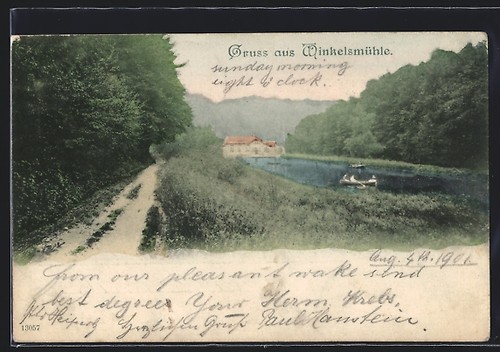 Gruss aus Winkelsmühle.
sunday morning
eight o'clock.
Aug. 4th. 190
from our pleasant wake send
best degrees Your Herm. Krebs,
Herzlichen Gruß Paul Hanstein.
13057